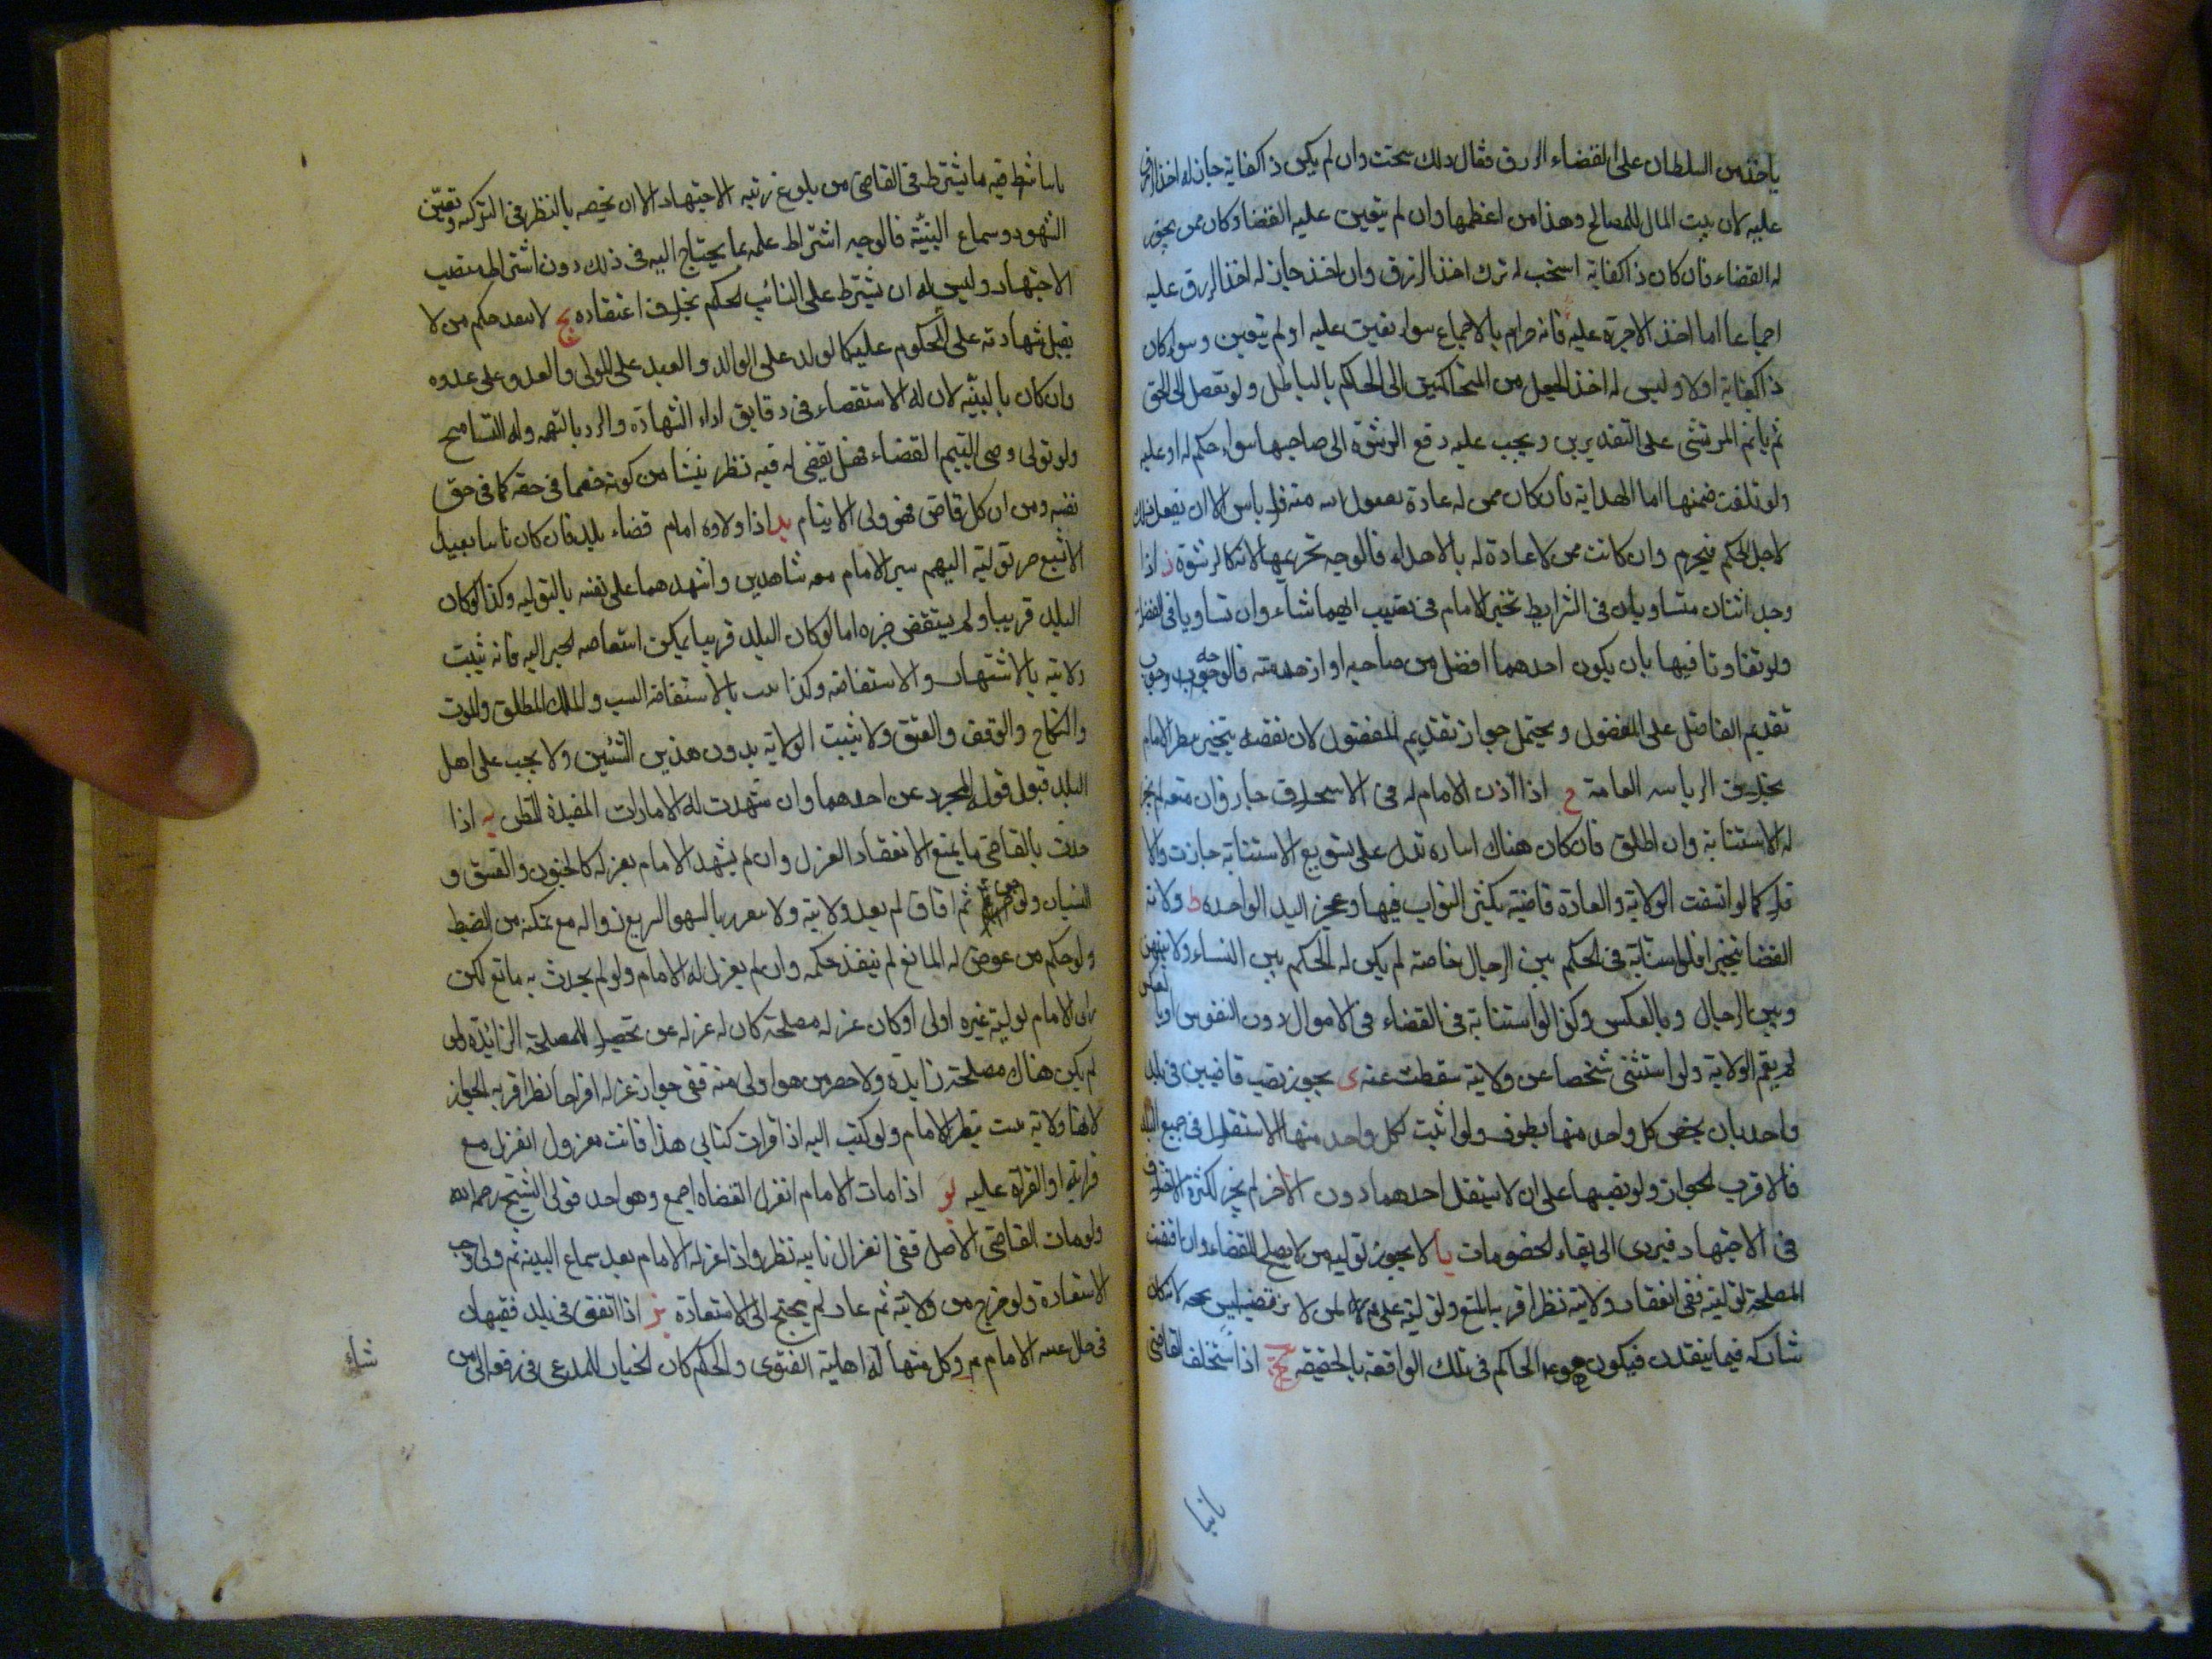 ياخذ من السلطان على القضاء الرزق فقال ذلك سحت وان لم يكن ذا كفاية جاز له اخذ الرزق
عليه لان بيت المال للمصالح وهذا من اعظمها وان لم يتعين عليه القضا وكان ممن يجوز
له القضاء فان كان ذا كفاية استحب له ترك اخذ الرزق وان اخذ جاز له اخذ الرزق عليه
اجماعا اما اخذ الاجرة عليه فانه حرام بالاجماع سواء تعين عليه او لم يتعين وسواء كان
ذا كفاية اولا وليس له اخذ الجعل من المتحاكمين الى الحاكم بالباطل ولو تصل الى الحق
ثم ياثم المرتشى على التقديرين ويجب عليه دفع الرشوة الى صاحبها سواء حكم له او عليه
ولو تلفت ضمنها اما الهداية فان كان ممن له عادة بقبول منه فلا باس الا ان يفعل ذلك
لاجل الحكم فيحرم وان كانت ممن لا عادة له بالاهداء فالوجه تحريمها لانه كالرشوة ز اذا
وجد اثنان متساويان فى الشرايط تخير الامام فى نصيب ايهما شاء وان تساويا فى القضاء
ولو تفاوتا فيها بان يكون احدهما افضل من صاحبه او ازهد منه فالوجه وجوب
تقديم الفاضل على المفضول ويحتمل جواز تقديم المفضول لان نقصه ينجبر بنظر الامام
بخلاف الرياسه العامة ح اذا اذن الامام له فى الاستخلاف جاز وان منعه لم يجز
له الاستنابة وان اطلق فان كان هناك اماره تدل على تسويغ الاستنابة جازت والا
فلا كما لو اتسعت الولاية والعادة قاضية بكثر النواب فيها وعجز اليد الواحده ط ولاية
القضا يتجزا فلو استنابه فى الحكم بين الرجال خاصة لم يكن له الحكم بين النساء ولا بينهن
وبين الرجال وبالعكس وكذا لو استنابه فى القضاء فى الاموال دون النفوس او بالعكس
لم يعم الولاية ولو استثنى شخصا عن ولايته سقطت عنه ى يجوز نصب قاضيين فى بلد
واحد بان يخص كل واحد منهما بطرف ولو اثبت لكل واحد منهما الاستقلال فى جميع البلد
فالاقرب الجواز ولو نصبهما على ان لا يستقل احدهما دون الاخر لم يجز لكثرة الاختلاف
فى الاجتهاد فيودى الى بقاء الخصومات يا لا يجوز توليه من لا يصلح للقضاء وان اقتضت
المصلحة توليته ففى انعقاد ولايته نظر اقربه المنع وتولية على لمن لا يرتضيه ليس بحجه لانه كان
شاركه فيما ينفذه فيكون هو الحاكم فى تلك الواقعة بالحقيقه يج اذا استخلف القاضى
نائبا
نائبا شرط فيه ما يشترط فى القاضى من بلوغ رتبه الاجتهاد الا ان يخصه بالنظر فى التزكيه وتعين
الشهود وسماع البينه فالوجه اشتراط علمه بما يحتاج اليه فى ذلك دون اشتراط منصب
الاجتهاد وليس له ان يشترط على النائب الحكم بخلاف اعتقاده يج لا ينفذ حكم من لا
يقبل شهادته على المحكوم عليه كالولد على الوالد والعبد على المولى والعدو على عدوه
وان كان بالبينه لان له الاستقصاء فى دقايق اداء الشهادة والرد بالتهمه وله التسامح
ولو تولى وصى اليتيم القضاء فهل يقضى له فيه نظر ينشا من كونه خصما فى حقه كما فى حق
نفسه ومن ان كل قاض فهو ولى الايتام يد اذا ولاه امام قضاء بلد فان كان نائيا بعيدا
لا يشيع خبر توليته اليهم سير الامام معه شاهدين واشهدهما على نفسه بالتوليه وكذا لو كان
البلد قريبا ولم يستفض خبره اما لو كان البلد قريبا يمكن استفاضه الخبر اليه فانه يثبت
ولايته بالاشتهار والاستفاضه وكذا يثبت بالاستفاضه النسب والملك المطلق والموت
والنكاح والوقف والعتق ولا يثبت الولاية بدون هذين الشيئين ولا يجب على اهل
البلد قبول قوله المجرد عن احدهما وان شهدت له الامارات المفيدة للظن يه اذا
حدث بالقاضى ما يمنع الانعقاد انعزل وان لم يشهد الامام بعزله كالجنون والفسق و
النسيان ولو جن ثم افاق لم يعد ولايته ولا بالسهو السريع زواله مع تمكنه من الضبط
ولو حكم من عرض له المانع لم ينفذ حكمه وان لم يعزل له الامام ولو لم يحدث به مانع لكن
راى الامام تولية غيره اولى او كان عزله مصلحة كان له عزله عن تحصيل المصلحة الزائدة ولو
لم يكن هناك مصلحة زايدة ولا حضر من هو اولى منه ففى جواز عزله اقتراحا نظر اقربه الجواز
لانها ولاية تثبت بنظر الامام ولو كتب اليه اذا قرات كتابى هذا فانت معزول انعزل مع
قراته او القراة عليه يو اذا مات الامام انعزل القضاه اجمع وهو احد قولى الشيخ رحمه الله
ولو مات القاضى الاصل ففى انعزال نائبيه نظر واذا عزله الامام بعد سماع البينه ثم ولى وجب
الاستعادة ولو خرج من ولايته ثم عاد لم يحتج الى الاستعادة يز اذا اتفق فى بلد فقيهان
فى حال غيبه الامام ع م وكل منهما له اهلية الفتوى والحكم كان الخيار للمدعى فى رفعه الى من
شاء